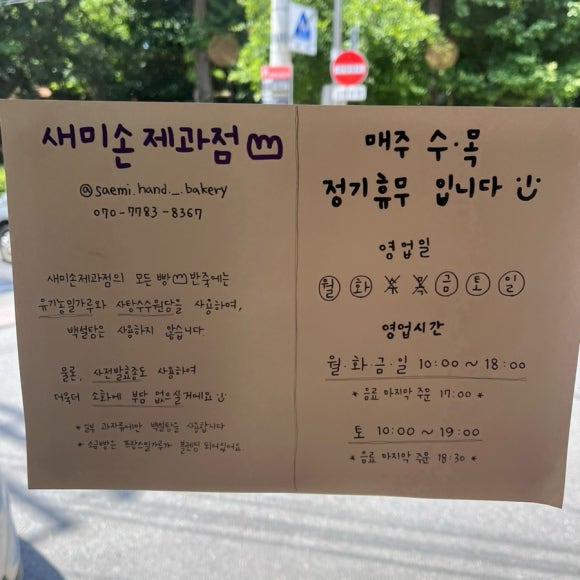 새미손 제과점
@saemi.hand._.bakery
070-7783-8367
새미손제과점의 모든 빵 반죽에는
유기농밀가루와 사탕수수원당을 사용하며,
백설탕은 사용하지 않습니다.
물론, 사전발효종도 사용하여
더욱더 소화에 부담 없으실거예요
* 일부 과자류에만 백설탕을 사용합니다
* 소금빵은 프랑스밀가루가 블렌딩 되어있어요.
매주 수·목
정기휴무 입니다
영업일
월 화 수 목 금 토 일
영업시간
월·화·금·일 10:00 ~ 18:00
* 음료 마지막 주문 17:00 *
토 10:00 ~ 19:00
* 음료 마지막 주문 18:30 *